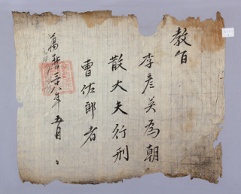 教旨
李彦英為朝
散大夫行刑
曹佐郎者
萬曆三十八年五月日